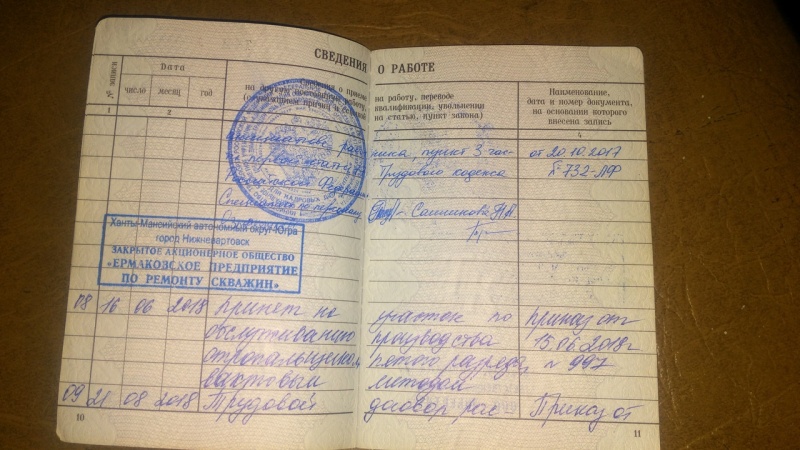 СВЕДЕНИЯ О РАБОТЕ
№ записи
Дата
число месяц год
Сведения о приеме на работу, переводе
на другую постоянную работу, квалификации, увольнении
(с указанием причин и ссылкой на статью, пункт закона)
Наименование,
дата и номер документа,
на основании которого
внесена запись
1 2 4
инициативе работника, пункт 3 час- от 20.10.2017
первой статьи Трудового кодекса № 732-ЛФ
Российской Федерации
Специалист по персоналу Санникова
Ханты-Мансийский автономный округ-Югра
город Нижневартовск
ЗАКРЫТОЕ АКЦИОНЕРНОЕ ОБЩЕСТВО
«ЕРМАКОВСКОЕ ПРЕДПРИЯТИЕ
ПО РЕМОНТУ СКВАЖИН»
08 16 06 2018 Принят на участок по Приказ от
обслуживанию производства 15.06.2018г
стропальщиком пятого разряда, № 997
вахтовым методом
09 21 08 2018 Трудовой договор рас Приказ от
10
11